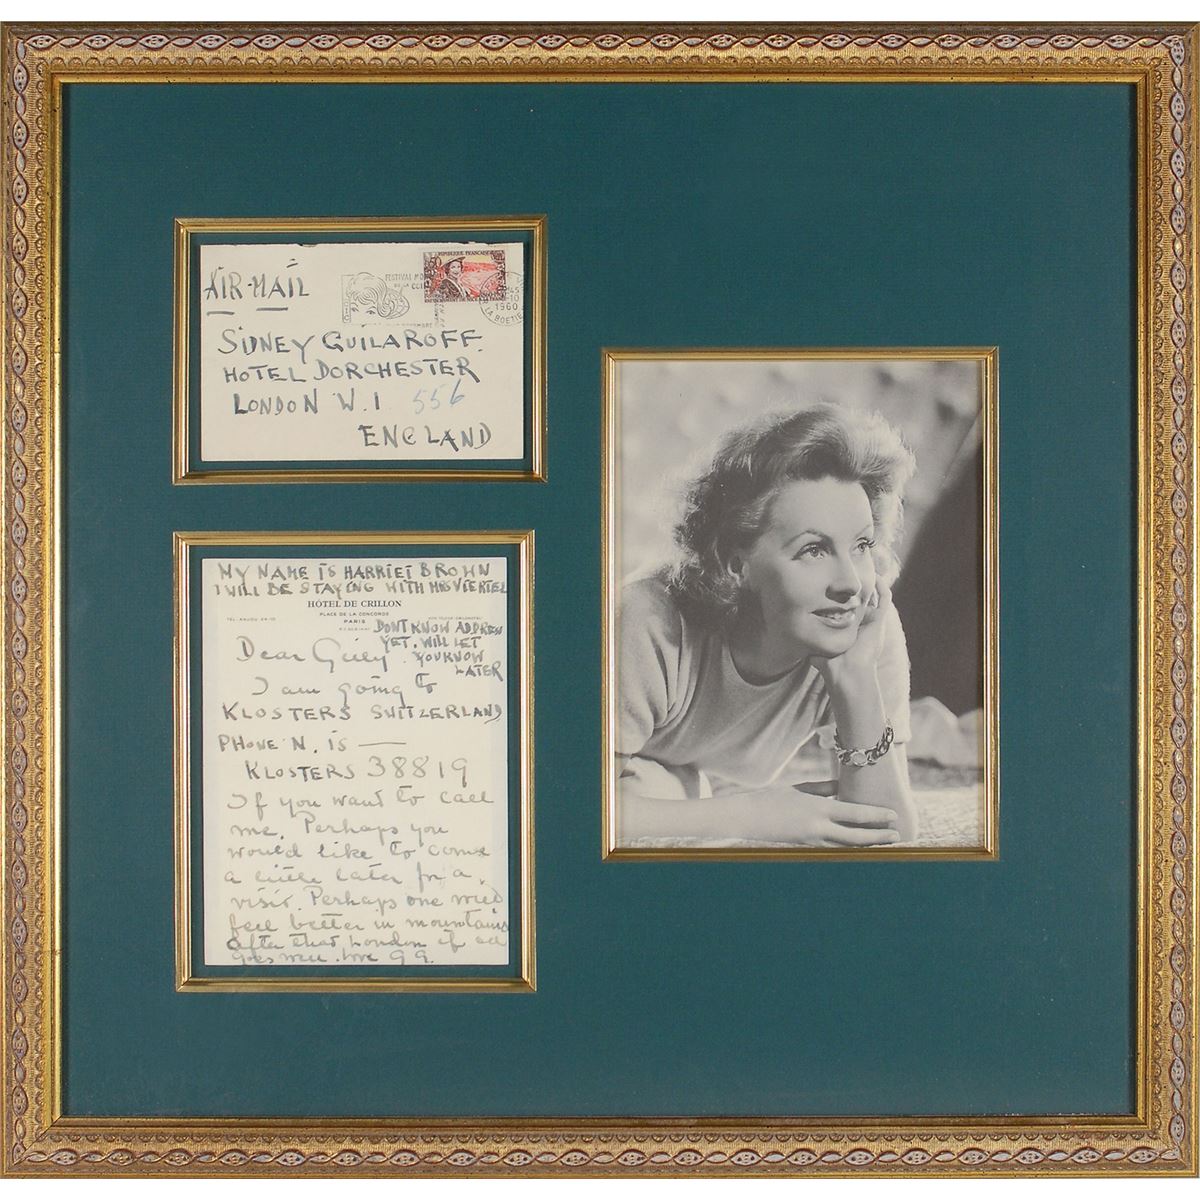 AIR-MAIL
FESTIVAL
DE LA
REPUBLIQUE FRANÇAISE
1960
LA BOETIE
SIDNEY GUILAROFF
HOTEL DORCHESTER
LONDON W.1 556
ENGLAND
MY NAME IS HARRIET BROWN
I WILL BE STAYING WITH MRS VIERTEL
HÔTEL DE CRILLON
PLACE DE LA CONCORDE
PARIS
DONT KNOW ADDRESS
YET. WILL LET
YOU KNOW
LATER
Dear
I am going to
KLOSTERS SWITZERLAND
PHONE N. IS —
KLOSTERS 38819
If you want to call
me. Perhaps you
would like to come
a little later for a
visit. Perhaps one would
feel better in mountains
after that London if all
goes well. love G G.